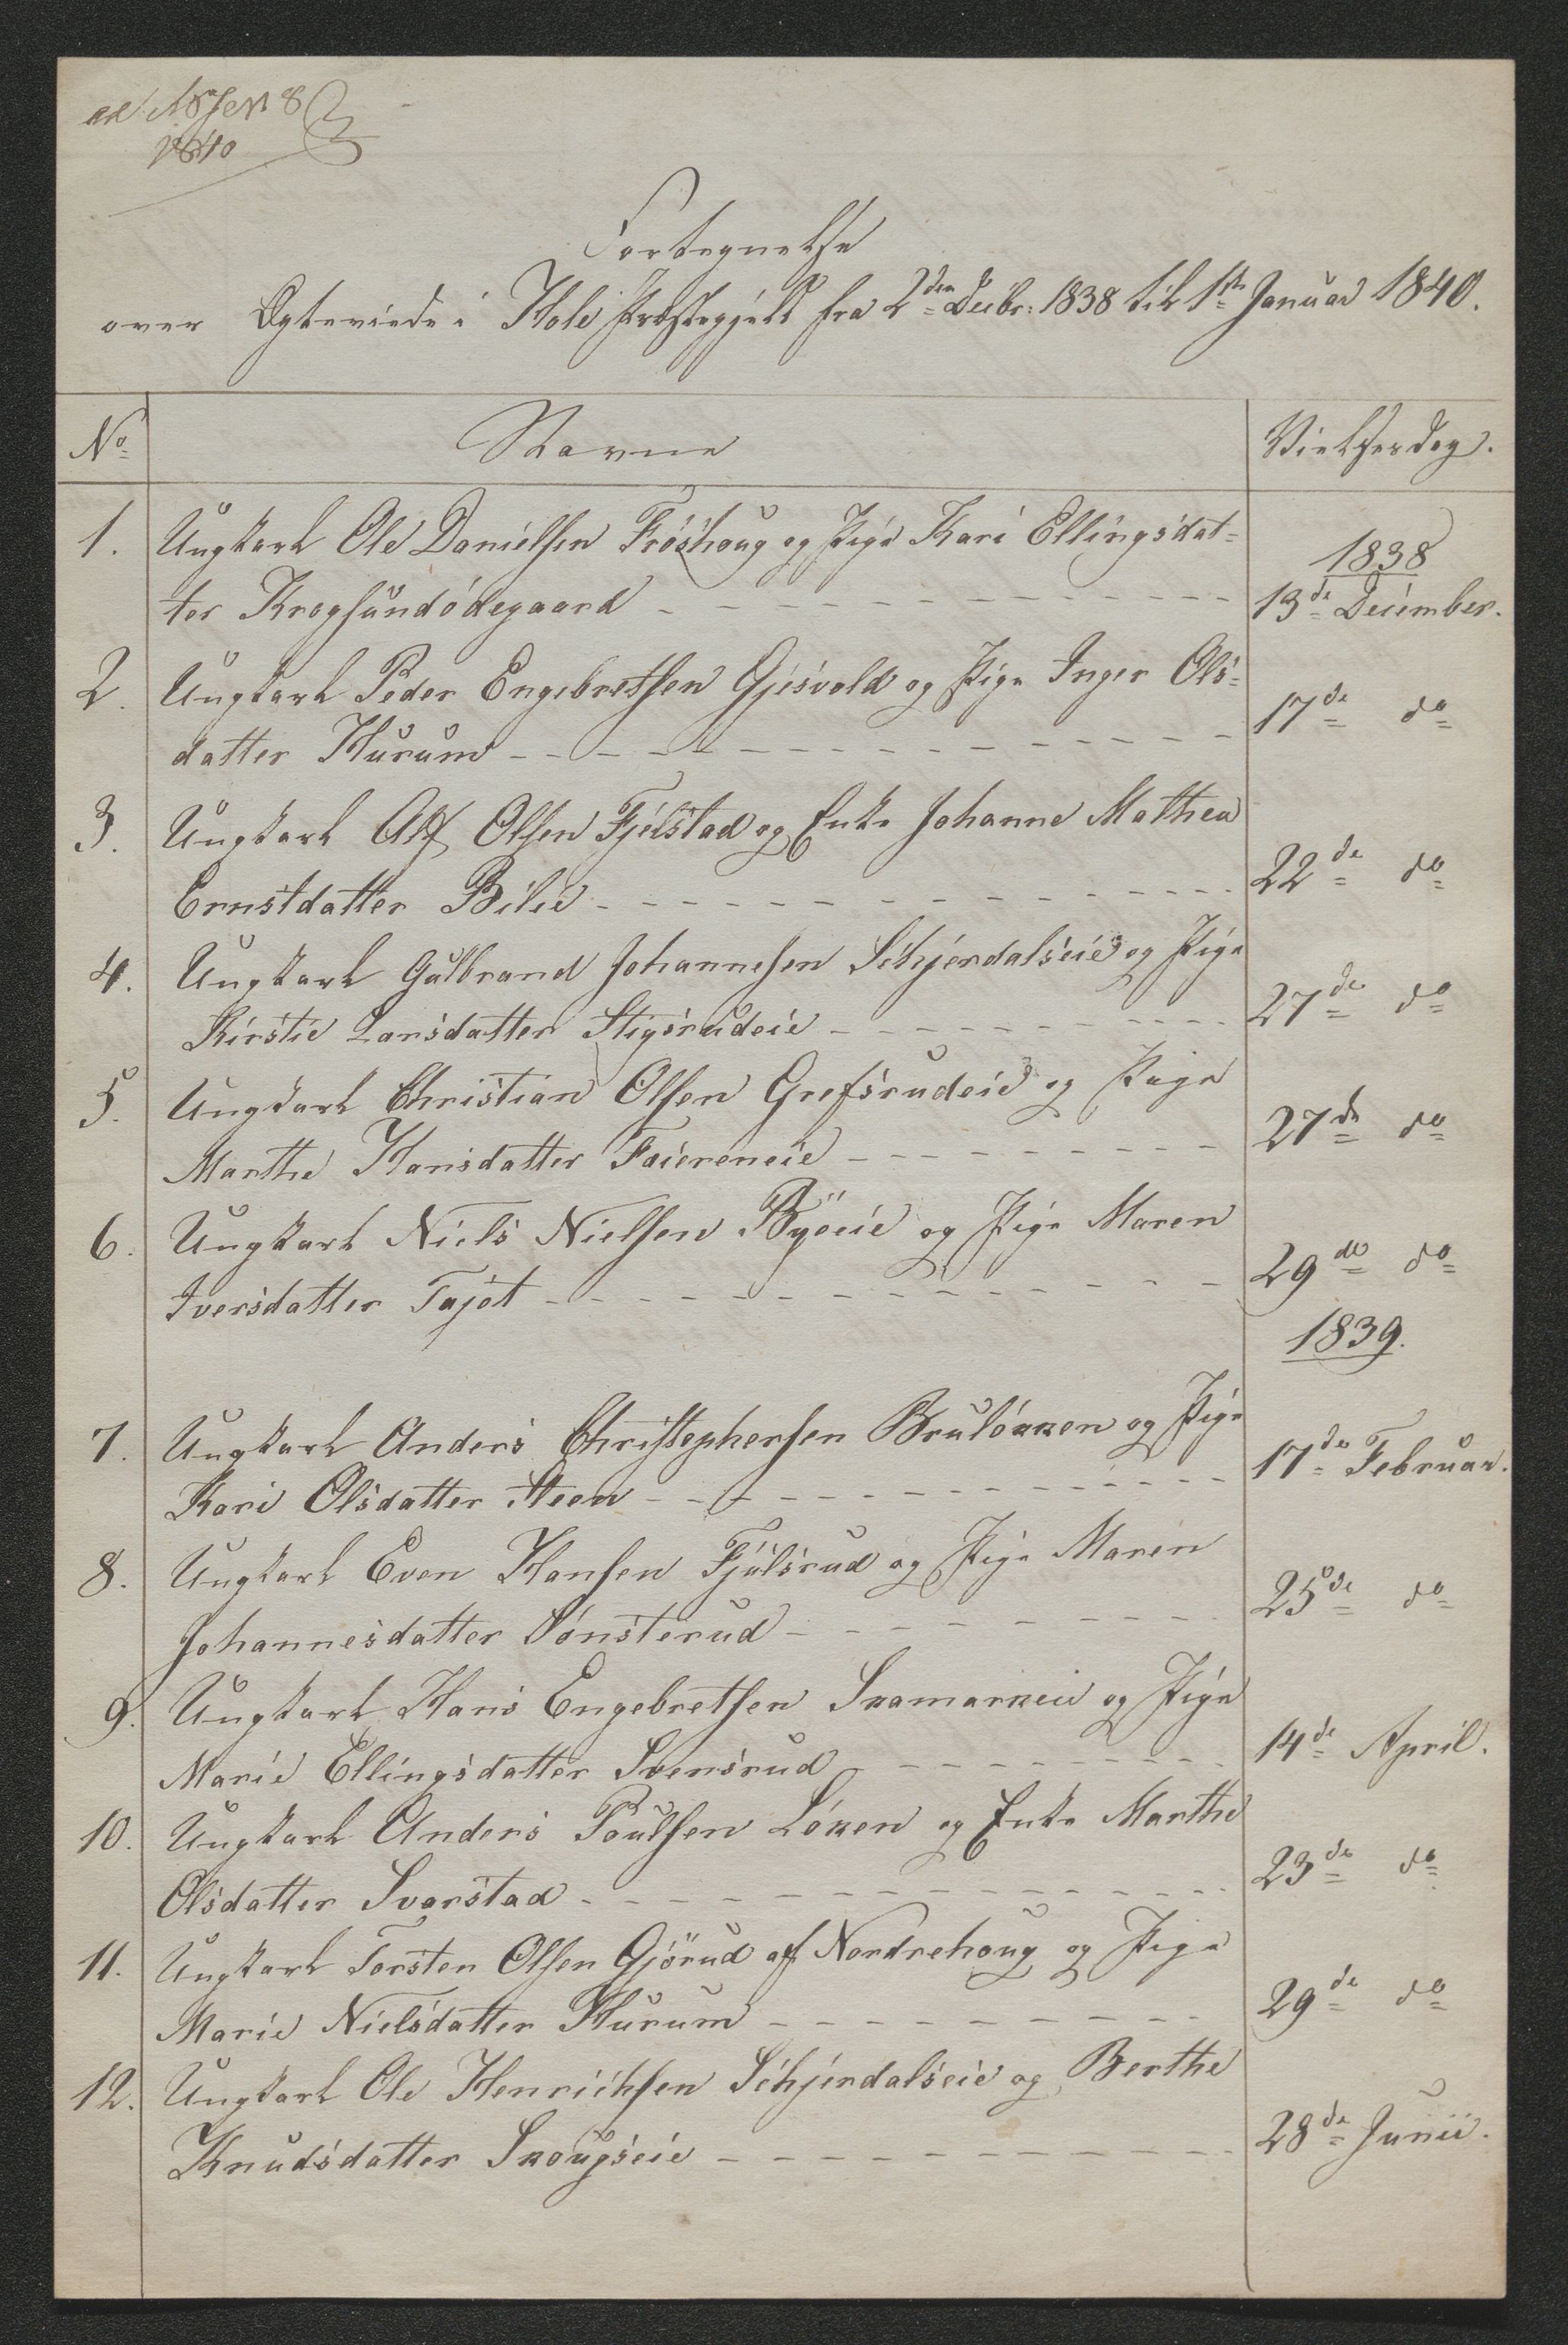 1840
Fortegnelse
over Egteviede i Hole Præstegjeld fra 2den Decbr: 1838 til 1ste Januar 1840.
No Navne Vielsesdag.
1. Ungkarl Ole Danielsen Fröshoug og Pige Kari Ellingsdat=
1838
ter Krogsundödegaard 13de December.
2. Ungkarl Peder Engebretsen Gjesvold og Pige Inger Ols=
17de do
datter Hurum
3. Ungkarl Alf Olsen Fjelstad og Enke Johanne Mathea
22de do
Ernstdatter Bilie
4. Ungkarl Gulbrand Johannesen Schjerdalseie og Pige
27de do
Kirstie Larsdatter Stigsrudeie
5. Ungkarl Christian Olsen Grefsrudeie og Pige
27de do
Marthe Hansdatter Faiereneie
6. Ungkarl Niels Nielsen Byeeie og Pige Maren
29de do
Iversdatter Fajot
1839.
7. Ungkarl Anders Christephersen Brulökken og Pige
17de Februar.
Kari Olsdatter Steen
8. Ungkarl Even Hansen Fjulsrud og Pige Maren
25de do
Johannesdatter Sönsterud
9. Ungkarl Hans Engebretsen Skamarkeie og Pige
14de April.
Marie Ellingsdatter Svensrud
10. Ungkarl Anders Poulsen Löken og Enke Marthe
23de do
Olsdatter Svarstad
11. Ungkarl Torsten Olsen Gjörud af Nordrehoug og Pige
29de do
Marie Nielsdatter Hurum
12. Ungkarl Ole Henrichsen Schjerdalseie og Berthe
28de Junii.
Knudsdatter Skougseie